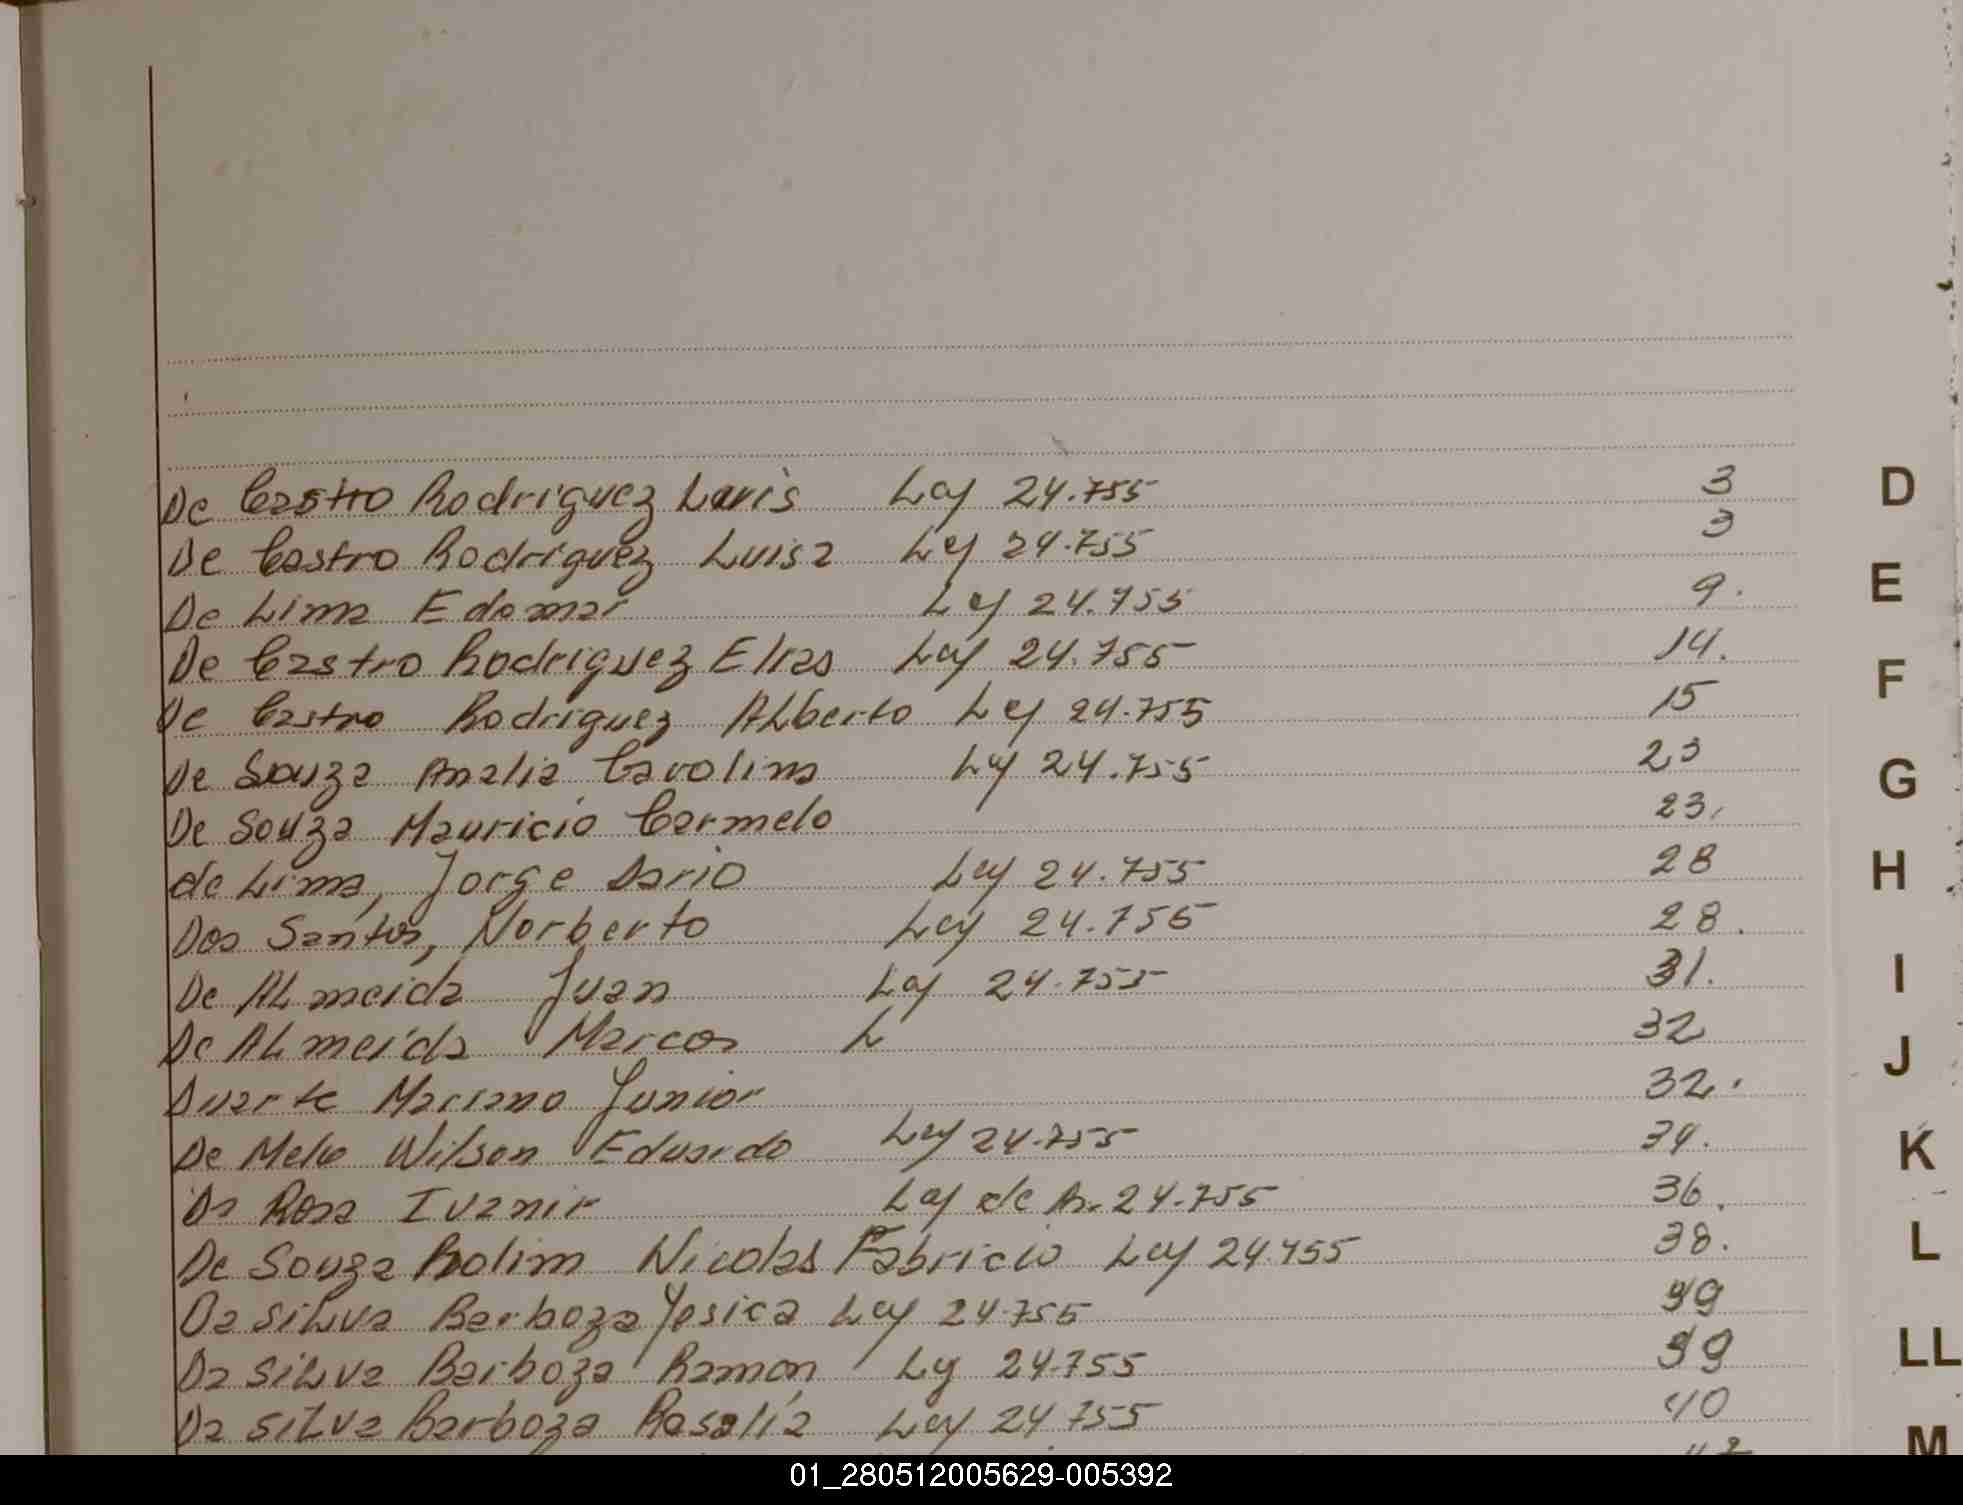 De Castro Rodriguez Luris Ley 24.755 3
De Castro Rodriguez Luisa Ley 24.755 3
De Lima Edomar Ley 24.755 9.
De Castro Rodriguez Elias Ley 24.755 14.
De Castro Rodriguez ALberto Ley 24.755 15
De Souza Analia Carolina Ley 24.755 23
De Souza Mauricio Carmelo 23.
de Lima, Jorge Dario Ley 24.755 28
Dos Santos, Norberto Ley 24.755 28.
De ALmeida Juan Ley 24.755 31.
De ALmeida Marcos L 32
Duarte Mariano Junior 32.
De Melo Wilson Eduardo Ley 24.755 34.
Da Rosa Ivanir Ley de A. 24.755 36.
De Souza Rolim Nicolas Fabricio Ley 24.755 38.
Da SiLva Barboza Yesica Ley 24.755 39
Da SiLva Barboza Ramón Ley 24.755 39
Da SiLva Barboza Rosalia Ley 24.755 40
D
E
F
G
H
I
J
K
L
LL
M
01_280512005629-005392